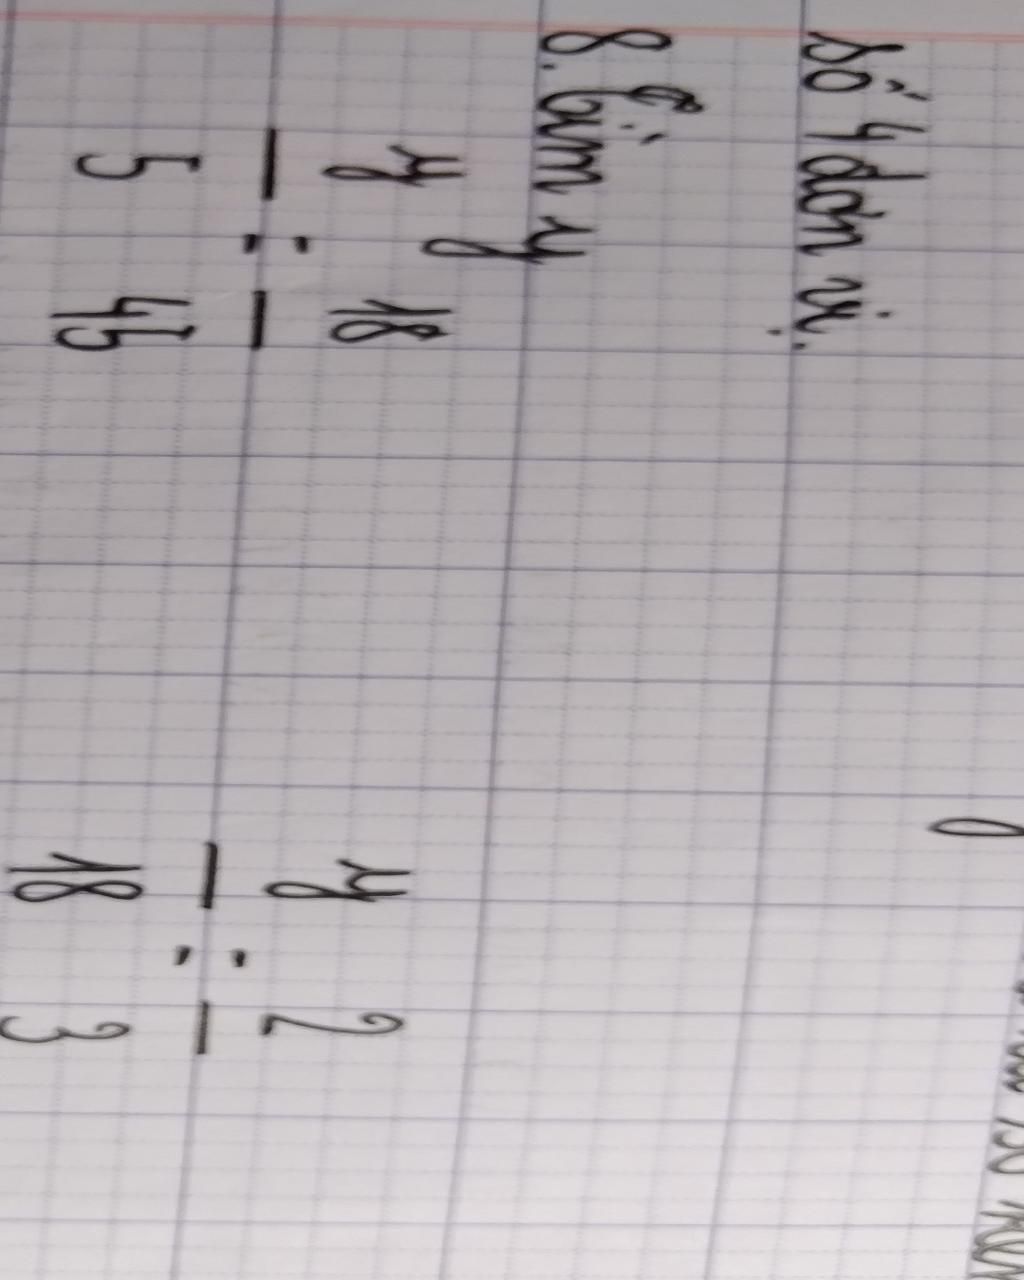 số 4 đơn vị.
8. Tìm y
y/5 : 18/45 y/18 : 2/3